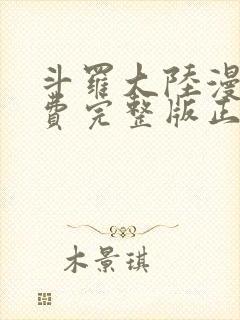 斗羅大陸漫
費完整版正
木景琪